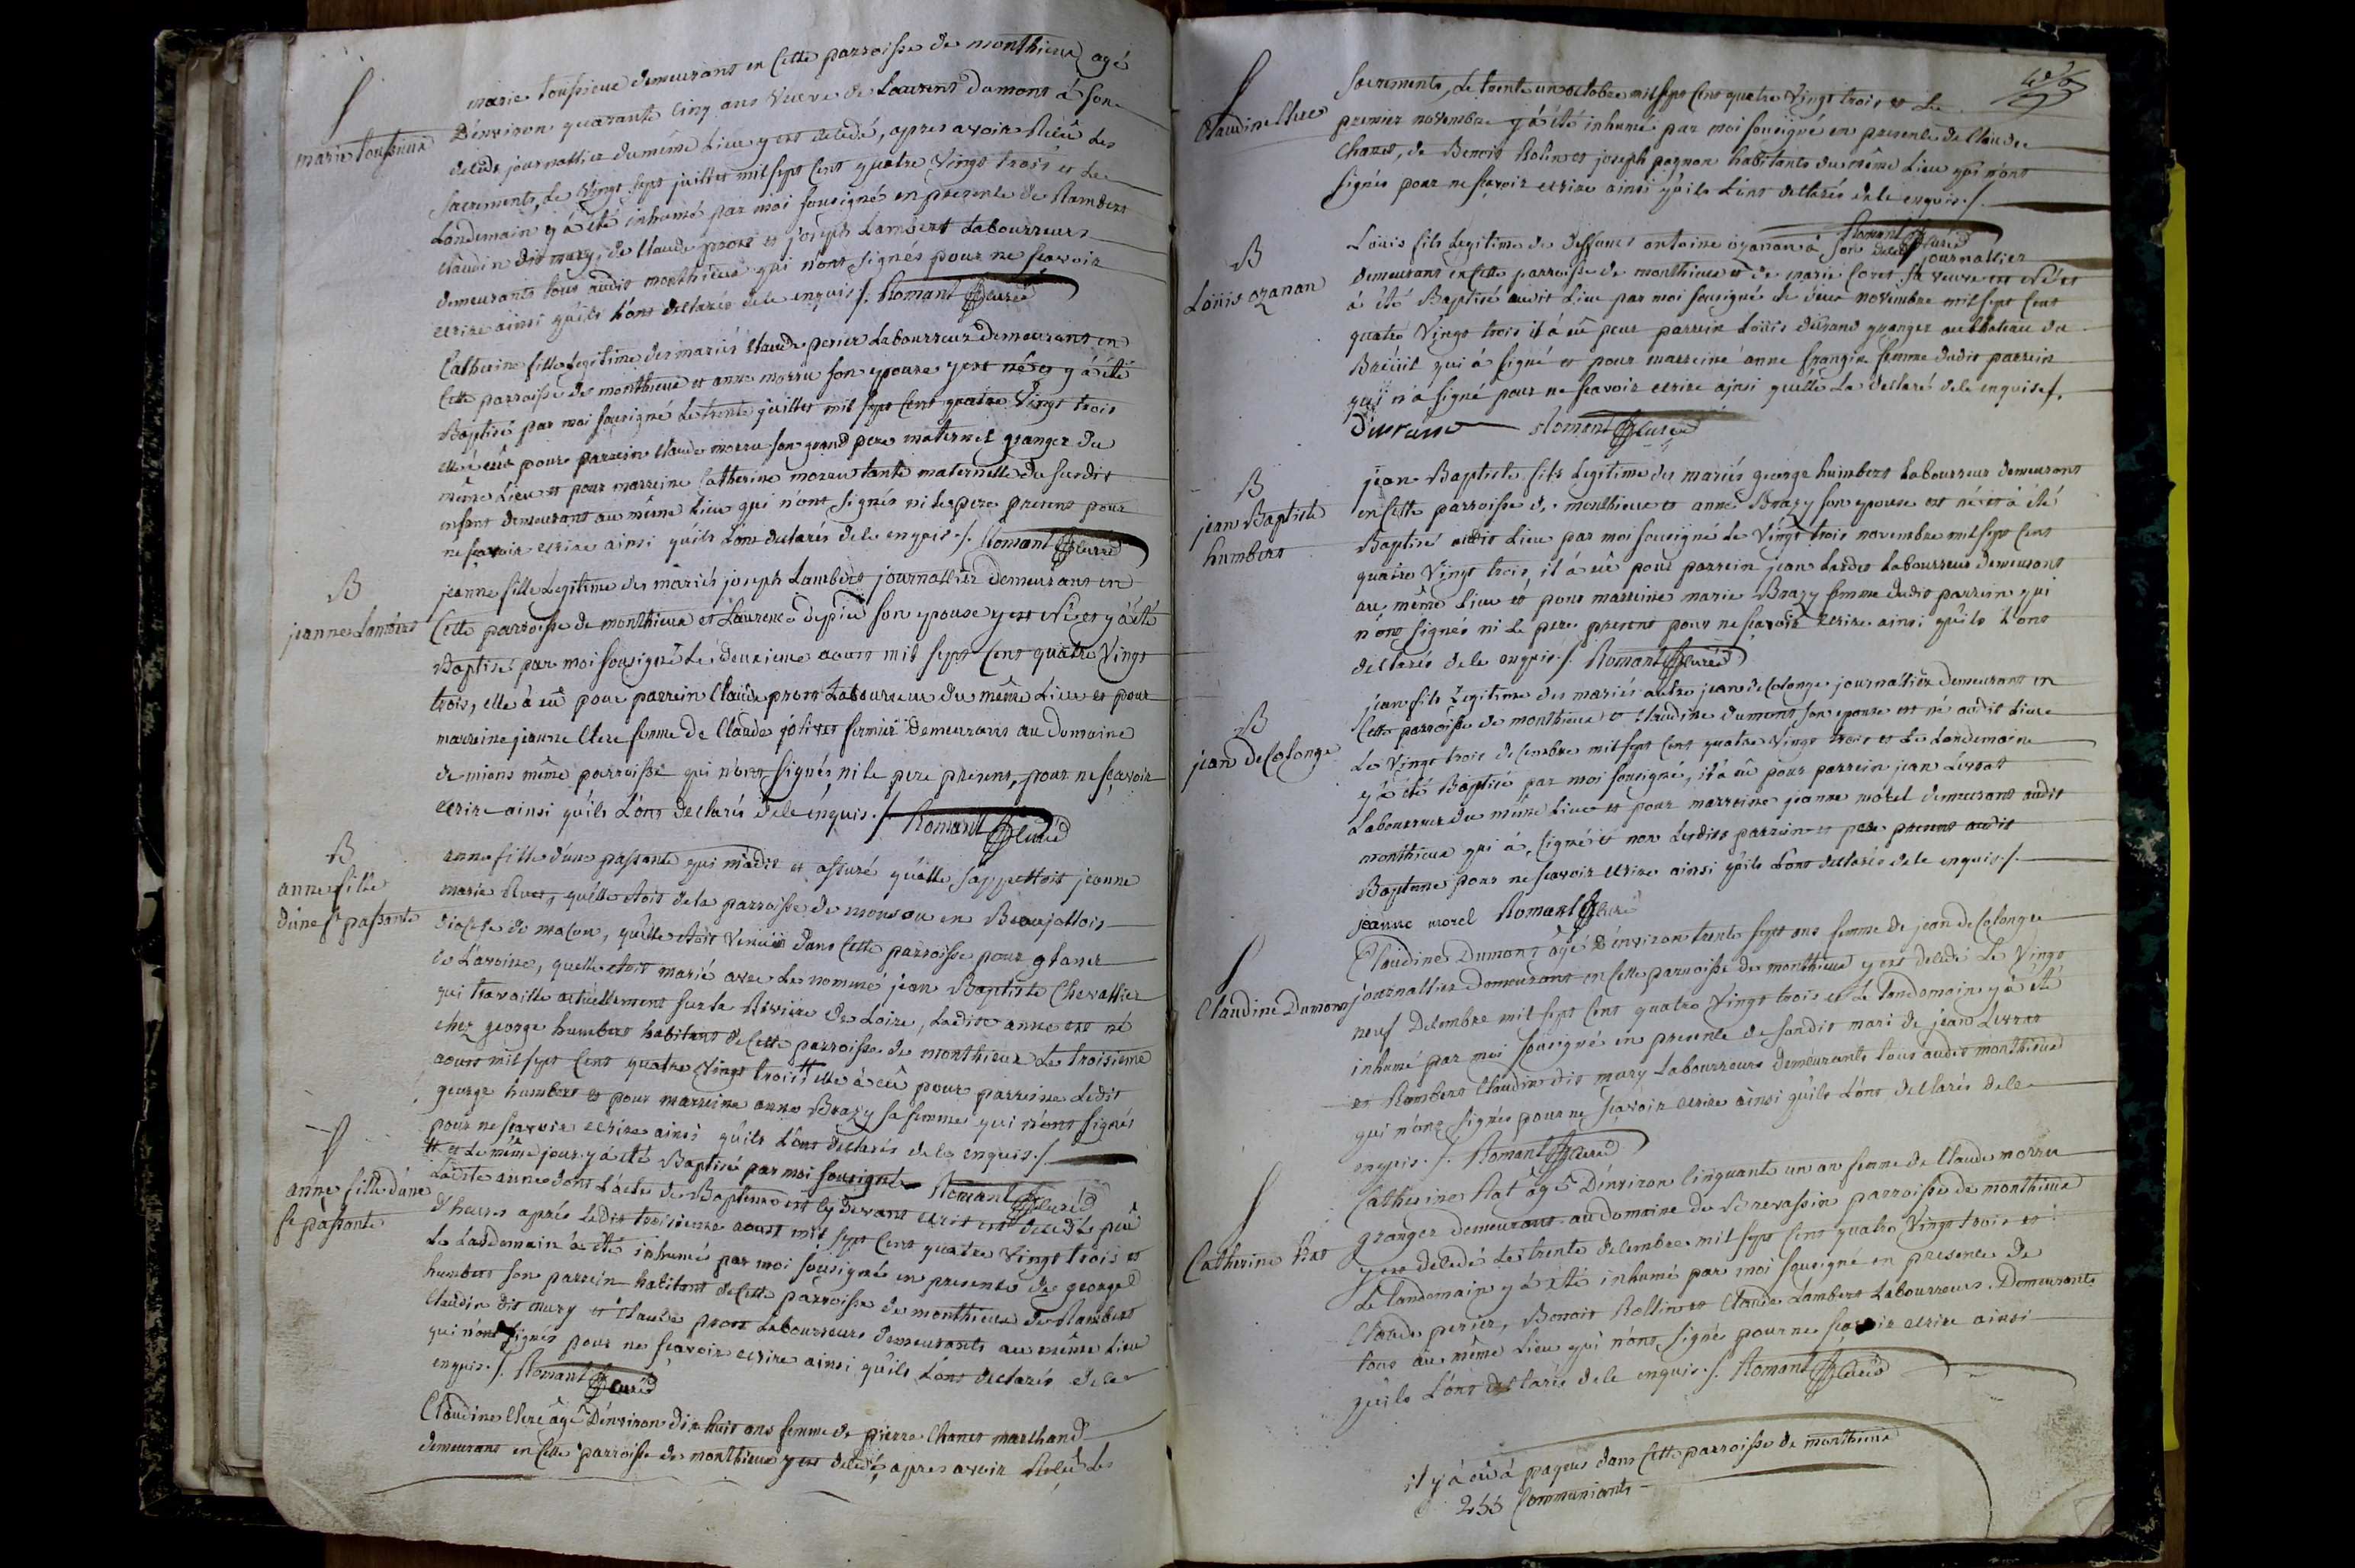 S
marie toussieue
marie toussieue demeurant en cette parroisse de monthieux agé
D'environ quarante cinq ans veuve de Laurent dumont á son
decéds journallier du même Lieu y est decedé, apres avoir Recû Les
sacrements, Le vingt sept juillet mil sept cent quatre vingt trois et Le
Landemain y á été inhumé par moi sousigné en presence de Rambert
claudin dit mury, de claude prost et joseph Lambert Labourreurs
demeurants tous audit monthieux qui n'ont signés pour ne sçavoir
ecrire ainsi qu'ils L'ont declarés de ce enquis ./. Romant curé
Catherine fille Legitime des mariés claude perier Labourreur demeurant en
Cette parroisse de monthieux et anne morru son epouse y est née et y á été
Baptisé par moi sousigné Le trente juillet mil sept cent quatre vingt trois
elle á eûe pour parrein claude morru son grand pere maternel granger du
même Lieu et pour marreine Catherine morru tante maternelle du susdit
enfant demeurant au même Lieu qui n'ont signés ni Le pere present pour
ne sçavoir ecrire ainsi qu'ils L'ont declarés de ce enquis ./. Romant curé
B
jeanne Lambert
jeanne fille Legitime des mariés joseph Lambert journallier demeurant en
Cette parroisse de monthieux et Laurence depié son epouse y est Née et y á été
Baptisé par moi sousigné Le deuxieme aoust mil sept cent quatre vingt
trois, elle á eû pour parrein Claude prost Labourreur du même Lieu et pour
marreine jeanne Clere femme de Claude jolivet fermier demeurant au domaine
de mions même parroisse qui n'ont signés, ni le pere present, pour ne sçavoir
ecrire ainsi qu'ils L'ont declarés de ce enquis ./. Romant curé
B
anne fille
d'une se passante
anne fille d'une passante qui m'a dit et assuré qu'elle s'appelloit jeanne
marie qu'elle etoit de la parroisse de en Beaujollois
diocese de macon, qu'elle etoit venuë dans Cette parroisse pour glaner
de L'avoine, qu'elle etoit marié avec Le nommé jean Baptiste Chevallier
qui travaille actuellement sur la Riviere de Loire, Ladite anne est né
chez george humbert habitant de Cette parroisse de monthieux Le troisieme
aoust mil sept Cent quatre vingt trois # elle á eû pour parreine Ledit
george humbert et pour marreine anne Brazy sa femme qui n'ont signés
pour ne sçavoir ecrire ainsi qu'ils L'ont declarés de ce enquis ./.
# et Le même jour y á été Baptisé par moi sousigné Romant curé
S
anne fille d'une
se passante
Ladite anne dont L'acte de Baptême est cy devant ecrit est decedé peû
d'heures aprés Ledit troisieme aoust mil sept cent quatre vingt trois et
Le Landemain á été inhumé par moi sousigné en presence de george
humbert son parrein habitant de Cette parroisse de monthieux de Rambert
Claudin dit mury et Claude prost Labourreurs demeurants au même Lieu
qui n'ont signés pour ne sçavoir ecrire ainsi qu'ils L'ont declarés de ce
enquis ./. Romant curé
Claudine Clere âgé D'environ dix huit ans femme de pierre Chanet marchand
demeurant en Cette parroisse de monthieux y est decedé, apres avoir Recû Les
S
Claudine Clere
sacrements, Le trente un octobre mil sept Cent quatre vingt trois et Le
premier novembre y á été inhumé par moi sousigné en presence de Claude
Chanet, de Benoit Rolin et joseph pagnon habitants du même Lieu qui n'ont
signés pour ne sçavoir ecrire ainsi qu'ils L'ont declarés de ce enquis ./.
Romant curé
B
Loüis ozanan
Loüis fils Legitime de deffunt antoine ozanan á son decés journallier
demeurant en Cette parroisse de monthieux et de marie Coret sa veuve est Né et
á été Baptisé audit Lieu par moi sousigné Le deux novembre mil sept Cent
quatre vingt trois il á eû pour parrein Loüis durand granger au chateau du
Breüil qui á signé et pour marreine anne frangin femme dudit parrein
qui n'á signé pour ne sçavoir ecrire ainsi qu'elle L'a declaré de ce enquise ./.
Durand Romant curé
B
jean Baptiste
humbert
jean Baptiste fils Legitime des mariés george humbert Labourreur demeurant
en Cette parroisse de monthieux et anne Brazy son epouse est né et á été
Baptisé audit Lieu par moi sousigné Le vingt trois novembre mil sept Cent
quatre vingt trois, il á eû pour parrein jean Lardet Labourreur demeurant
au même Lieu et pour marreine marie Brazy femme dudit parrein qui
n'ont signés ni Le pere present pour ne sçavoir ecrire ainsi qu'ils L'ont
declarés de ce enquis ./. Romant curé
B
jean de Colonge
jean fils Legitime des mariés autre jean de Colonge journallier demeurant en
Cette parroisse de monthieux et Claudine dumont son epouse est né audit Lieu
Le vingt trois decembre mil sept Cent quatre vingt trois et Le Landemain
y á été Baptisé par moi sousigné, il á eû pour parrein jean Levrat
Labourreur du même Lieu et pour marreine jeanne morel demeurant audit
monthieux qui á signé et non Lesdits parrein et pere present audit
Baptême pour ne sçavoir ecrire ainsi qu'ils L'ont declarés de ce enquis ./.
jeanne morel Romant curé
S
Claudine Dumont
Claudine Dumont âgé D'environ trente sept ans femme de jean de Colonge
journallier demeurant en Cette parroisse de monthieux y est decedé Le vingt
neuf Decembre mil sept Cent quatre vingt trois et Le Landemain y á été
inhumé par moi sousigné en presence de sondit mari de jean Levrat
et Rambert Claudin dit mury Labourreurs demeurants tous audit monthieux
qui n'ont signés pour ne sçavoir ecrire ainsi qu'ils L'ont declarés de ce
enquis ./. Romant curé
S
Catherine Rat
Catherine Rat âgé D'environ cinquante un an femme de Claude morru
granger demeurant au domaine de Brevassin parroisse de monthieux
y est decedé Le trente decembre mil sept Cent quatre vingt trois et
Le Landemain y á été inhumé par moi sousigné en presence de
Claude perier, Benoit Rollin et Claude Lambert Labourreurs. Demeurants
tous au même Lieu qui n'ont signé pour ne sçavoir ecrire ainsi
qu'ils L'ont declarés de ce enquis ./. Romant curé
il y á eû á paques dans Cette parroisse de monthieux
255 Communiants